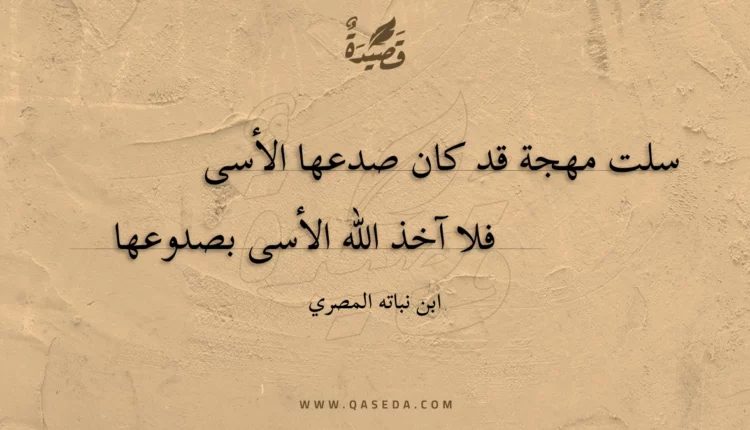 قَصِيْدَةٌ
سلت مهجة قد كان صدعها الأسى
فلا آخذ الله الأسى بصدوعها
ابن نباته المصري
WWW.QASEDA.COM